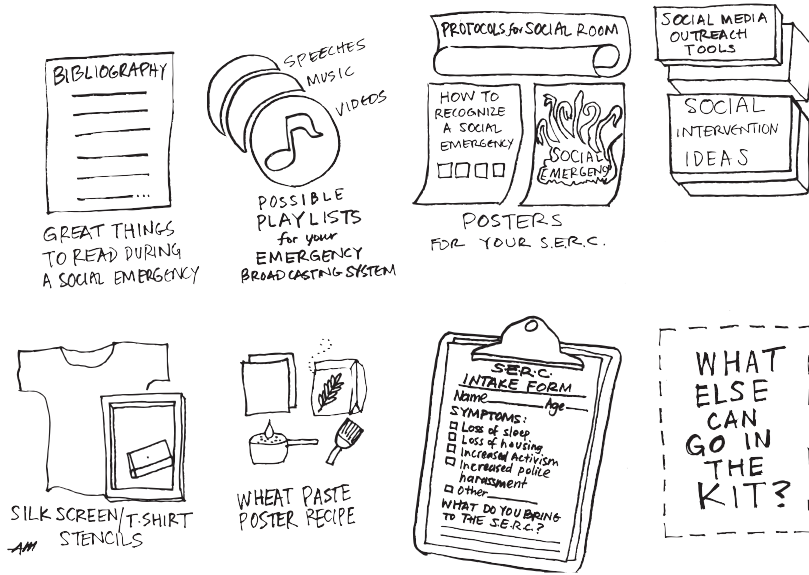 BIBLIOGRAPHY
GREAT THINGS
TO READ DURING
A SOCIAL EMERGENCY
SPEECHES
MUSIC
VIDEOS
POSSIBLE
PLAYLISTS
for your
EMERGENCY
BROADCASTING SYSTEM
PROTOCOLS for SOCIAL ROOM
HOW TO
RECOGNIZE
A SOCIAL
EMERGENCY
SOCIAL
EMERGENCY
POSTERS
FOR YOUR S.E.R.C.
SOCIAL MEDIA
OUTREACH
TOOLS
SOCIAL
INTERVENTION
IDEAS
SILK SCREEN/T-SHIRT
STENCILS
AM
WHEAT PASTE
POSTER RECIPE
S.E.R.C.
INTAKE FORM
Name Age
SYMPTOMS:
Loss of sleep
Loss of housing
Increased Activism
Increased police
harassment
Other
WHAT DO YOU BRING
TO THE S.E.R.C.?
WHAT
ELSE
CAN
GO IN
THE
KIT?